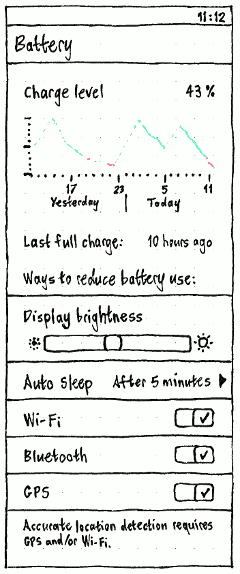 11:12
Battery
Charge level 43%
17 23 5 11
Yesterday | Today
Last full charge: 10 hours ago
Ways to reduce battery use:
Display brightness
Auto Sleep After 5 minutes
Wi-Fi
Bluetooth
GPS
Accurate location detection requires
GPS and/or Wi-Fi.